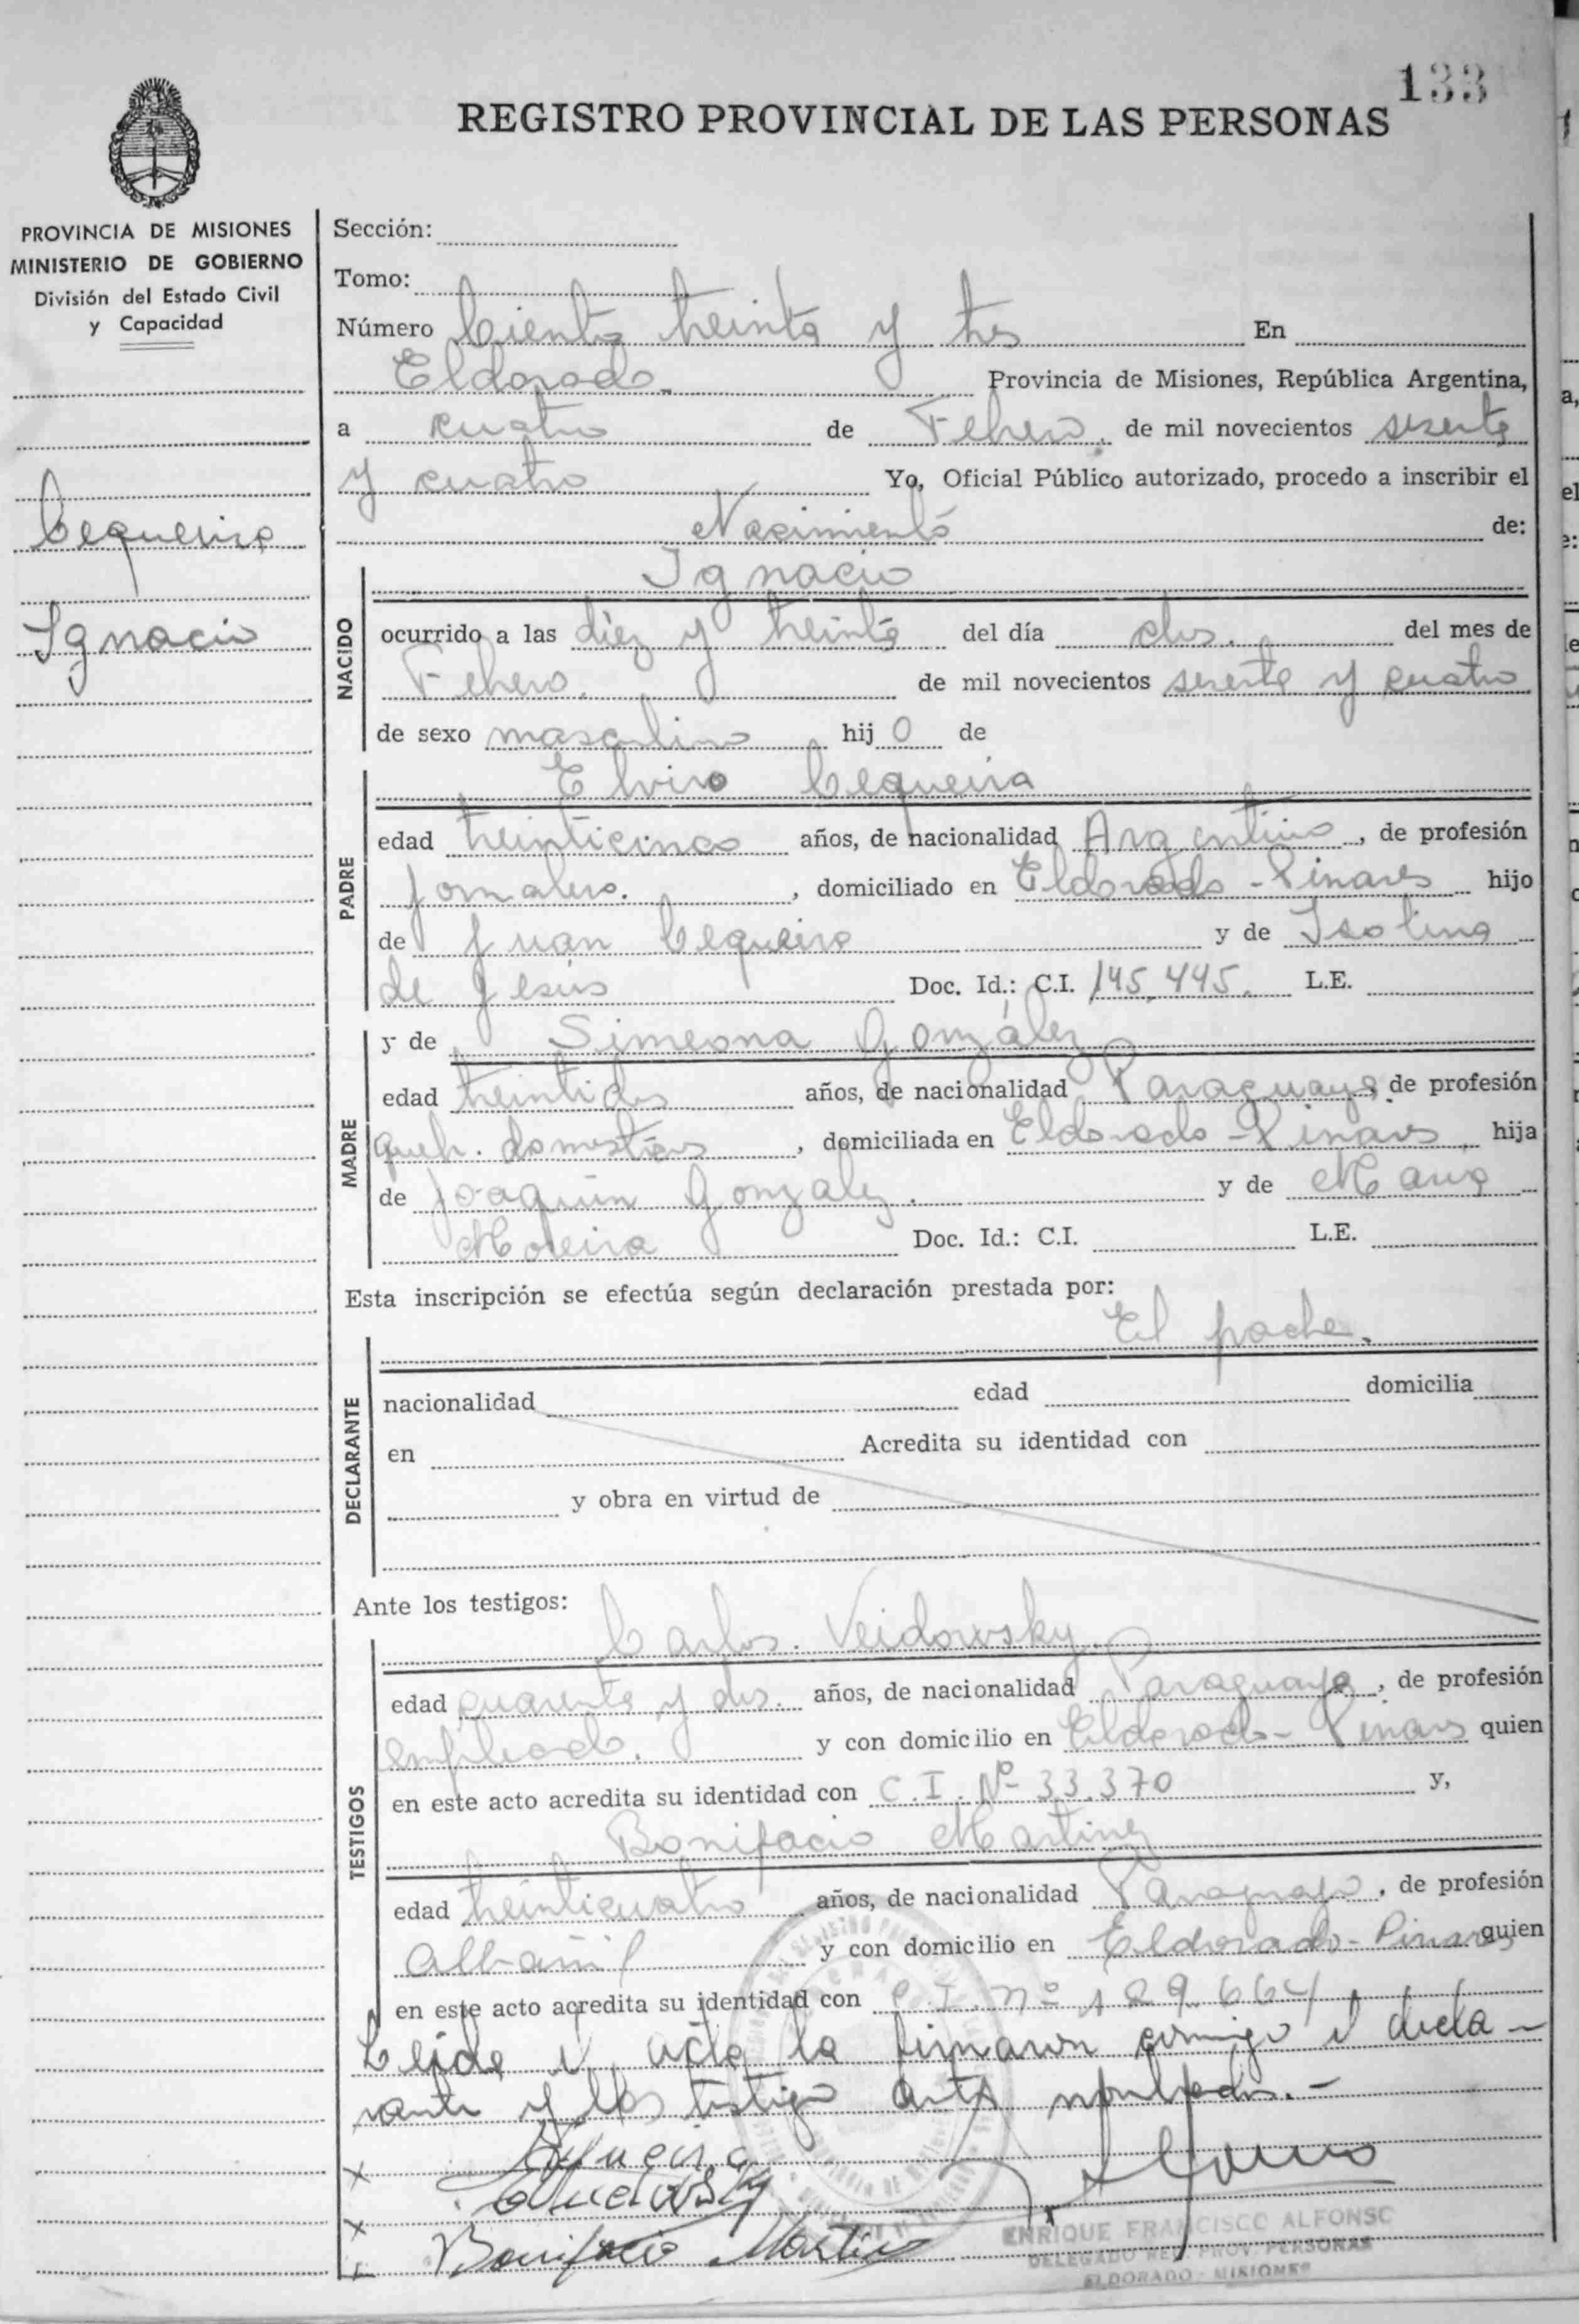 133
REGISTRO PROVINCIAL DE LAS PERSONAS
PROVINCIA DE MISIONES
MINISTERIO DE GOBIERNO
División del Estado Civil
y Capacidad
Cequeira
Ignacio
Sección:
Tomo:
Número Ciento treinta y tres En
Eldorado. Provincia de Misiones, República Argentina,
a cuatro de Febrero, de mil novecientos sesenta
y cuatro Yo, Oficial Público autorizado, procedo a inscribir el
Nacimiento de:
Ignacio
NACIDO
ocurrido a las diez y treinta del día dos. del mes de
Febrero, de mil novecientos sesenta y cuatro
de sexo masculino hij o de
Elviro Cequeira
PADRE
edad treinticinco años, de nacionalidad Argentino, de profesión
jornalero. , domiciliado en Eldorado - Pinares hijo
de Juan Cequeira y de Isolina
de Jesús Doc. Id.: C.I. 145.445. L.E.
MADRE
y de Simeona González
edad treintidos años, de nacionalidad Paraguaya, de profesión
queh. domésticos , domiciliada en Eldorado - Pinares hija
de Joaquín Gonzalez. y de María
Moreira Doc. Id.: C.I. L.E.
Esta inscripción se efectúa según declaración prestada por:
El padre.
DECLARANTE
nacionalidad edad domicilia
en Acredita su identidad con
y obra en virtud de
Ante los testigos:
Carlos. Veidowsky.
TESTIGOS
edad cuarenta y dos. años, de nacionalidad Paraguaya, de profesión
empleado. y con domicilio en Eldorado - Pinares quien
en este acto acredita su identidad con C.I. Nº 33.370 y,
Bonifacio Martinez
edad treinticuatro años, de nacionalidad Paraguayo, de profesión
Albañil y con domicilio en Eldorado - Pinares quien
en este acto acredita su identidad con C.I. nº 189.664
Leida el acta la firmaron conmigo el decla-
rante y los testigo antes nombrados.-
Bonifacio Martinez
ENRIQUE FRANCISCO ALFONSO
DELEGADO REG. PROV. PERSONAS
ELDORADO - MISIONES